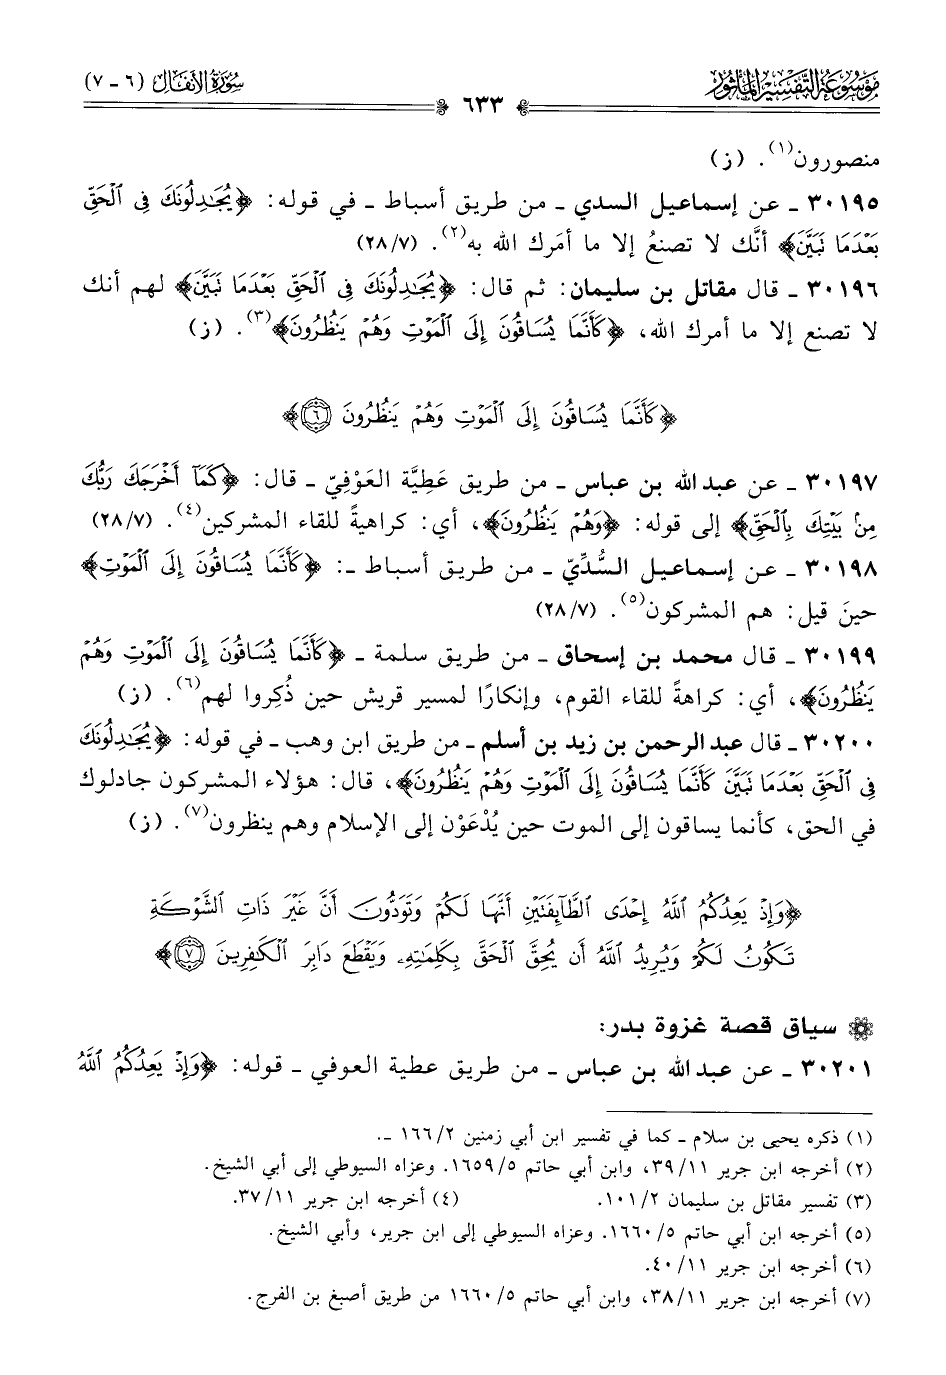 مَوْسُوعَةُ التَّفْسِيرِ المَأْثُور
٦٣٣
سُورَةُ الأَنفَالِ (٦ - ٧)
منصورون(١). (ز)
٣٠١٩٥ - عن إسماعيل السدي - من طريق أسباط - في قوله: ﴿يُجَٰدِلُونَكَ فِى ٱلْحَقِّ
بَعْدَمَا تَبَيَّنَ﴾ أنَّك لا تصنعُ إلا ما أمَرك الله به(٢). (٢٨/٧)
٣٠١٩٦ - قال مقاتل بن سليمان: ثم قال: ﴿يُجَٰدِلُونَكَ فِى ٱلْحَقِّ بَعْدَمَا تَبَيَّنَ﴾ لهم أنك
لا تصنع إلا ما أمرك الله، ﴿كَأَنَّمَا يُسَاقُونَ إِلَى ٱلْمَوْتِ وَهُمْ يَنظُرُونَ﴾(٣). (ز)
﴿كَأَنَّمَا يُسَاقُونَ إِلَى ٱلْمَوْتِ وَهُمْ يَنظُرُونَ ٦﴾
٣٠١٩٧ - عن عبد الله بن عباس - من طريق عَطِيَّة العَوْفِيّ - قال: ﴿كَمَآ أَخْرَجَكَ رَبُّكَ
مِنۢ بَيْتِكَ بِٱلْحَقِّ﴾ إلى قوله: ﴿وَهُمْ يَنظُرُونَ﴾، أي: كراهيةً للقاء المشركين(٤). (٢٨/٧)
٣٠١٩٨ - عن إسماعيل السُّدِّيّ - من طريق أسباط -: ﴿كَأَنَّمَا يُسَاقُونَ إِلَى ٱلْمَوْتِ﴾
حينَ قيل: هم المشركون(٥). (٢٨/٧)
٣٠١٩٩ - قال محمد بن إسحاق - من طريق سلمة - ﴿كَأَنَّمَا يُسَاقُونَ إِلَى ٱلْمَوْتِ وَهُمْ
يَنظُرُونَ﴾، أي: كراهةً للقاء القوم، وإنكارًا لمسير قريش حين ذُكِروا لهم(٦). (ز)
٣٠٢٠٠ - قال عبد الرحمن بن زيد بن أسلم - من طريق ابن وهب - في قوله: ﴿يُجَٰدِلُونَكَ
فِى ٱلْحَقِّ بَعْدَمَا تَبَيَّنَ كَأَنَّمَا يُسَاقُونَ إِلَى ٱلْمَوْتِ وَهُمْ يَنظُرُونَ﴾، قال: هؤلاء المشركون جادلوك
في الحق، كأنما يساقون إلى الموت حين يُدْعَوْن إلى الإسلام وهم ينظرون(٧). (ز)
﴿وَإِذْ يَعِدُكُمُ ٱللَّهُ إِحْدَى ٱلطَّآئِفَتَيْنِ أَنَّهَا لَكُمْ وَتَوَدُّونَ أَنَّ غَيْرَ ذَاتِ ٱلشَّوْكَةِ
تَكُونُ لَكُمْ وَيُرِيدُ ٱللَّهُ أَن يُحِقَّ ٱلْحَقَّ بِكَلِمَٰتِهِۦ وَيَقْطَعَ دَابِرَ ٱلْكَٰفِرِينَ ٧﴾
سياق قصة غزوة بدر:
٣٠٢٠١ - عن عبد الله بن عباس - من طريق عطية العوفي - قوله: ﴿وَإِذْ يَعِدُكُمُ ٱللَّهُ
(١) ذكره يحيى بن سلام - كما في تفسير ابن أبي زمنين ١٦٦/٢ -.
(٢) أخرجه ابن جرير ٣٩/١١، وابن أبي حاتم ١٦٥٩/٥. وعزاه السيوطي إلى أبي الشيخ.
(٣) تفسير مقاتل بن سليمان ١٠١/٢. (٤) أخرجه ابن جرير ٣٧/١١.
(٥) أخرجه ابن أبي حاتم ١٦٦٠/٥. وعزاه السيوطي إلى ابن جرير، وأبي الشيخ.
(٦) أخرجه ابن جرير ٤٠/١١.
(٧) أخرجه ابن جرير ٣٨/١١، وابن أبي حاتم ١٦٦٠/٥ من طريق أصبغ بن الفرج.